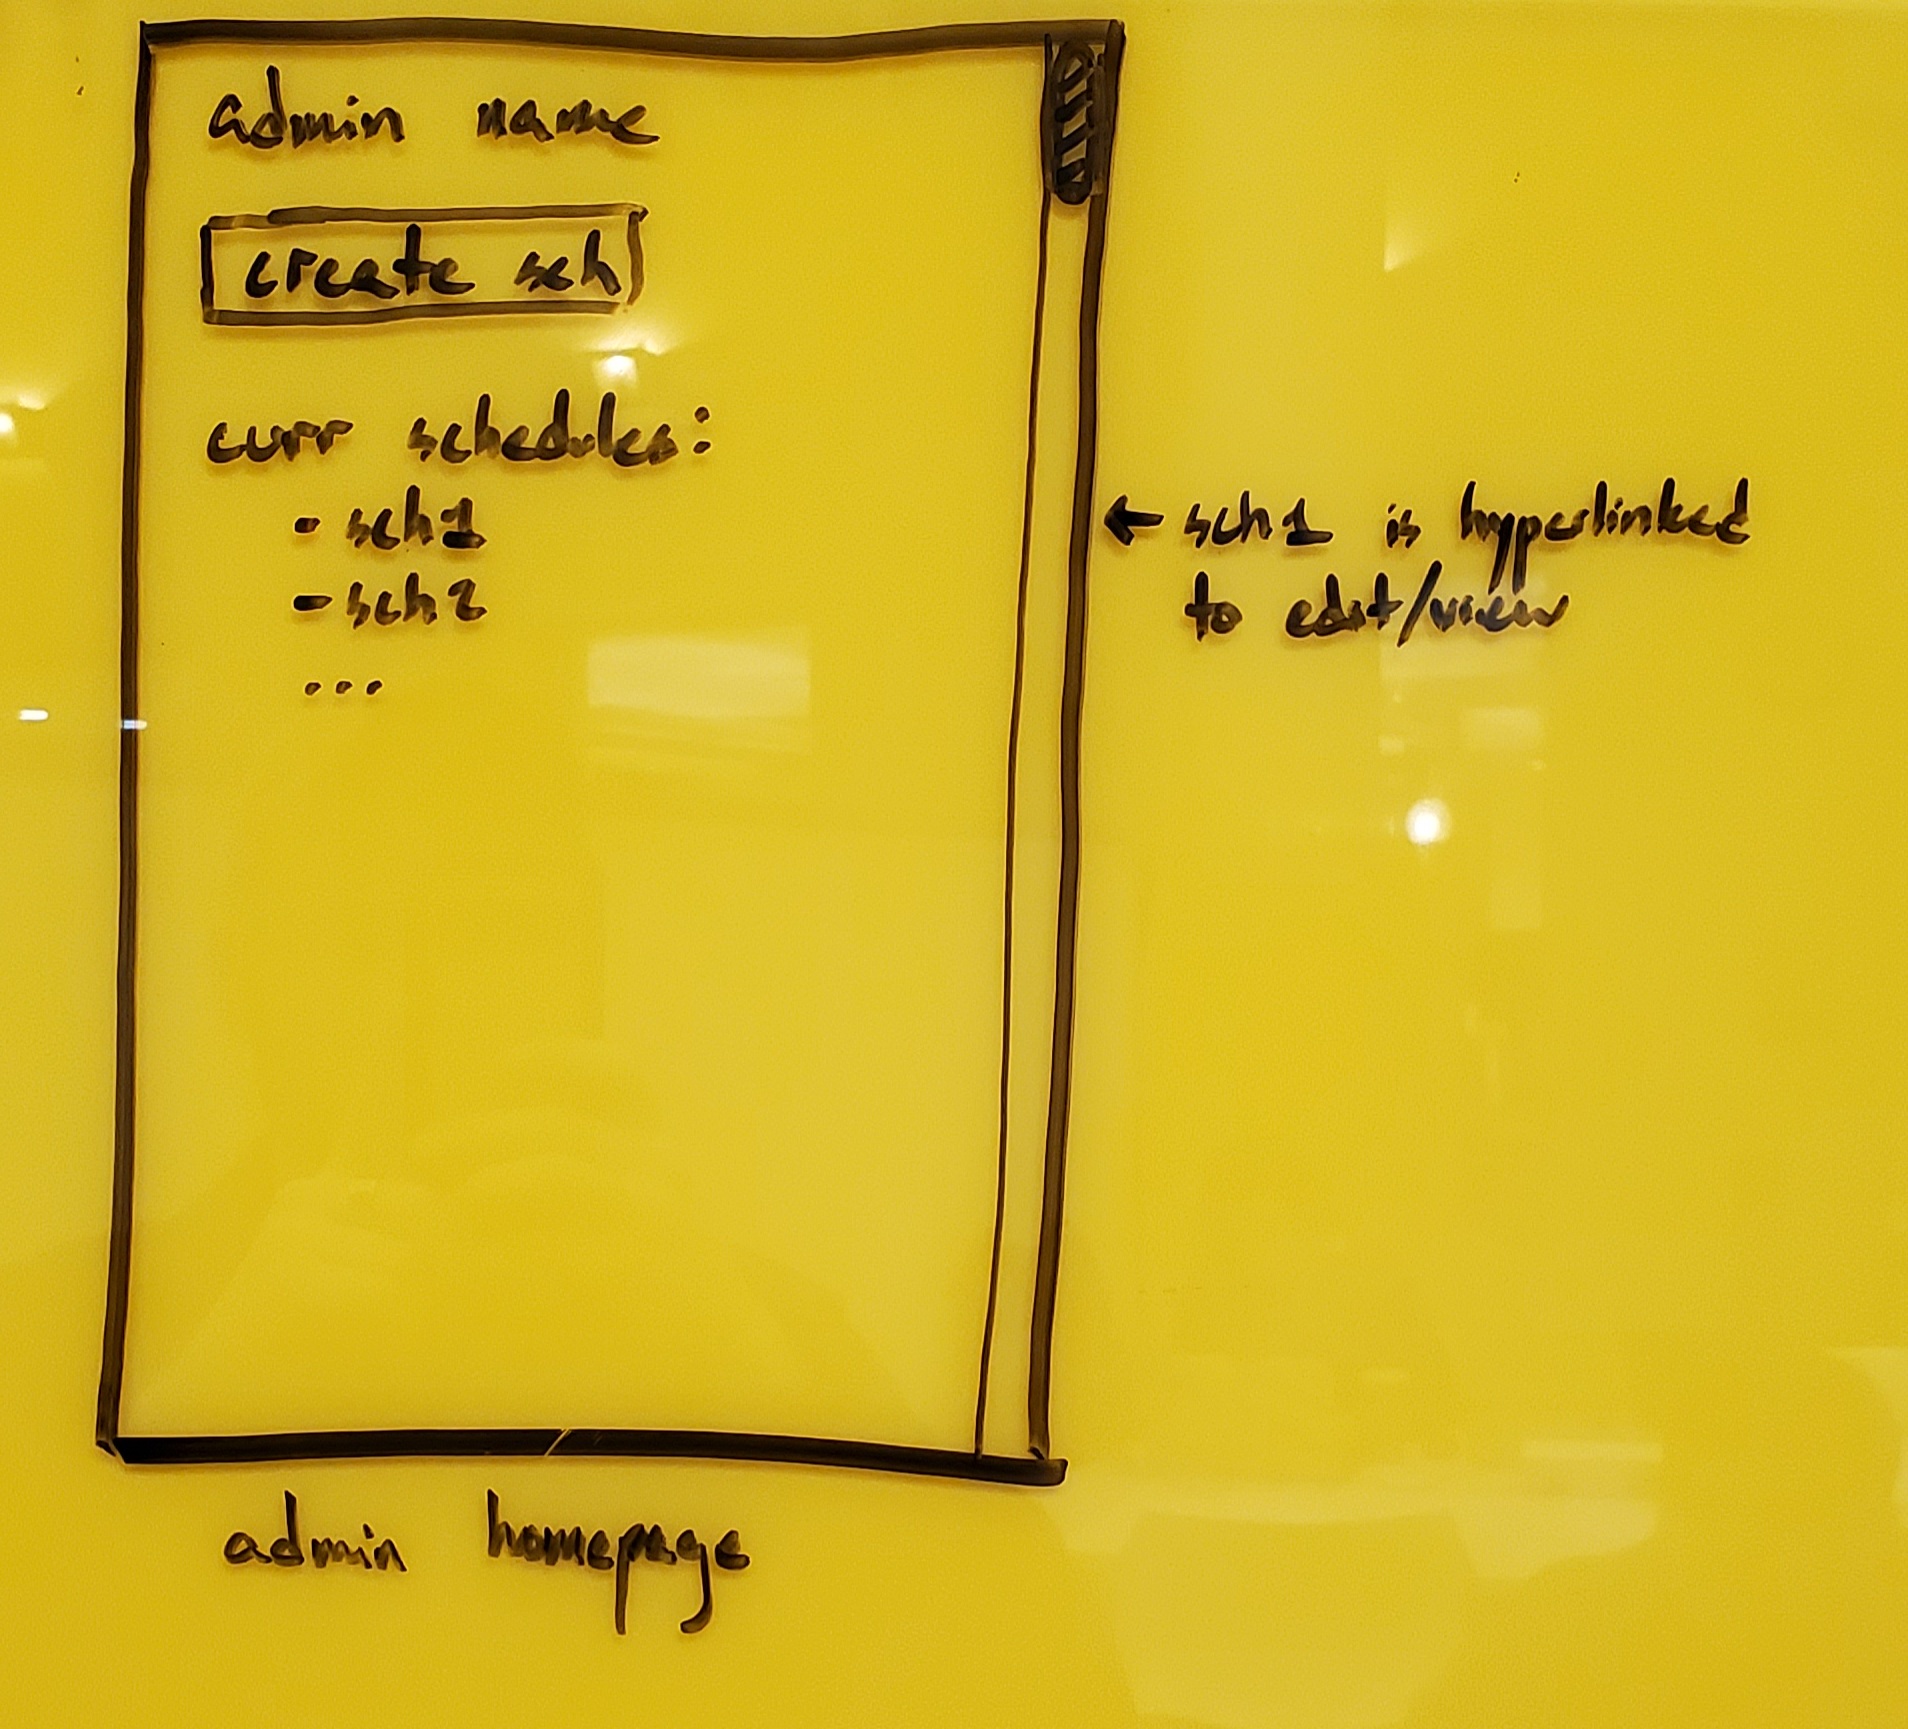 admin name
create sch
curr schedules:
- sch1
- sch2
...
← sch1 is hyperlinked
to edit/view
admin homepage